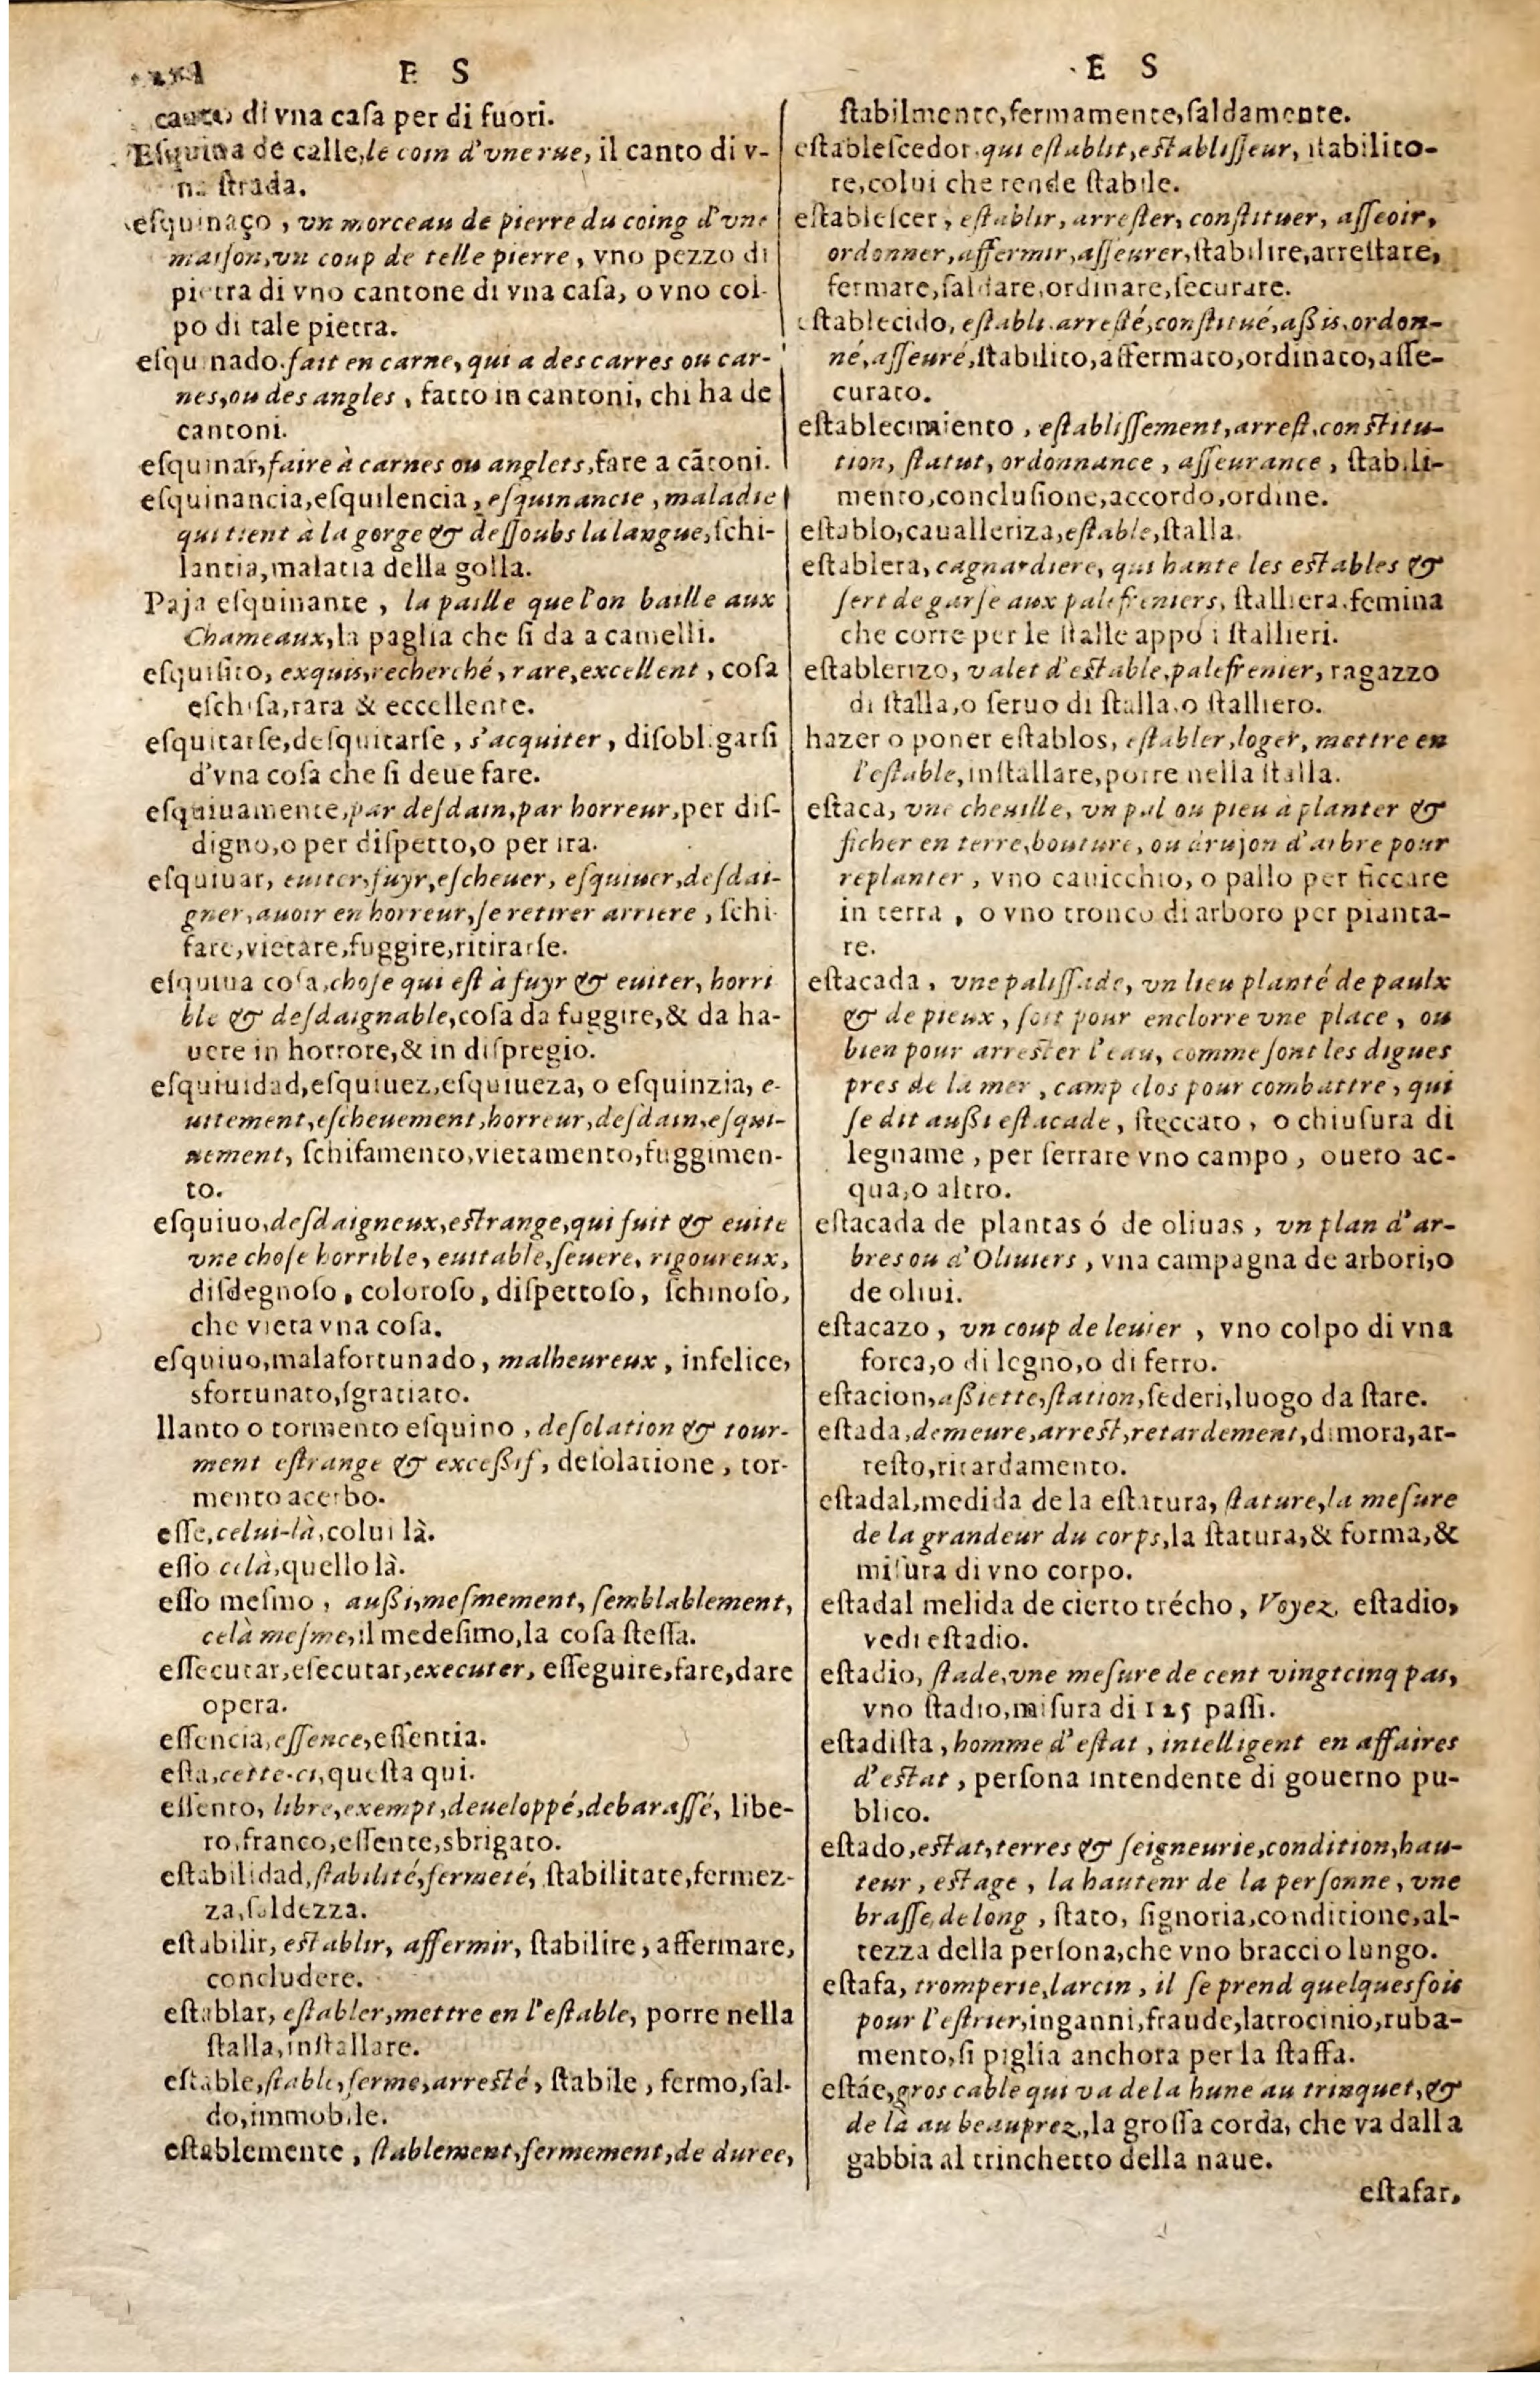 E S
canto di vna caſa per di fuori.
Eſquina de calle, le coin d'vne rue, il canto di v-
na ſtrada.
eſquinaço, vn morceau de pierre du coing d'vne
maiſon, vn coup de telle pierre, vno pezzo di
pietra di vno cantone di vna caſa, o vno col-
po di tale pietra.
eſquinado. fait en carne, qui a des carres ou car-
nes, ou des angles, fatto in cantoni, chi ha de
cantoni.
eſquinar, faire à carnes ou anglets, fare a cãtoni.
eſquinancia, eſquilencia, eſquinancie, maladie
qui tient à la gorge & deſſoubs la langue, ſchi-
lantia, malatia della golla.
Paja eſquinante, la paille que l'on baille aux
Chameaux, la paglia che ſi da a camelli.
eſquiſito, exquis, recherché, rare, excellent, coſa
eſchiſa, rara & eccellente.
eſquitarſe, deſquitarſe, s'acquiter, diſobligarſi
d'vna coſa che ſi deue fare.
eſquiuamente, par deſdain, par horreur, per diſ-
digno, o per diſpetto, o per ira.
eſquiuar, euiter, fuyr, eſcheuer, eſquiuer, deſdai-
gner, auoir en horreur, ſe retirer arriere, ſchi-
fare, vietare, fuggire, ritirarſe.
eſquiua coſa, choſe qui eſt à fuyr & euiter, horri
ble & deſdaignable, coſa da fuggire, & da ha-
uere in horrore, & in diſpregio.
eſquiuidad, eſquiuez, eſquiueza, o eſquinzia, e-
uitement, eſcheuement, horreur, deſdain, eſqui-
uement, ſchifamento, vietamento, fuggimen-
to.
eſquiuo, deſdaigneux, eſtrange, qui fuit & euite
vne choſe horrible, euitable, ſeuere, rigoureux,
diſdegnoſo, coloroſo, diſpettoſo, ſchinoſo,
che vieta vna coſa.
eſquiuo, malafortunado, malheureux, infelice,
sfortunato, ſgratiato.
llanto o tormento eſquino, deſolation & tour-
ment eſtrange & exceßif, deſolatione, tor-
mento acerbo.
eſſe, celui-là, colui là.
eſſo celà, quello là.
eſſo meſmo, außi, meſmement, ſemblablement,
celà meſme, il medeſimo, la coſa ſteſſa.
eſſecutar, eſecutar, executer, eſſeguire, fare, dare
opera.
eſſencia, eſſence, eſſentia.
eſta, cette-ci, queſta qui.
eſſento, libre, exempt, deueloppé, debaraſſé, libe-
ro, franco, eſſente, sbrigato.
eſtabilidad, ſtabilité, fermeté, ſtabilitate, fermez-
za, ſaldezza.
eſtabilir, eſtablir, affermir, ſtabilire, affermare,
concludere.
eſtablar, eſtabler, mettre en l'eſtable, porre nella
ſtalla, inſtallare.
eſtable, ſtable, ferme, arreſté, ſtabile, fermo, ſal-
do, immobile.
eſtablemente, ſtablement, fermement, de duree,
E S
ſtabilmente, fermamente, ſaldamente.
eſtableſcedor. qui eſtablit, eſtabliſſeur, ſtabilito-
re, colui che rende ſtabile.
eſtableſcer, eſtablir, arreſter, conſtituer, aſſeoir,
ordonner, affermir, aſſeurer, ſtabilire, arreſtare,
fermare, ſaldare, ordinare, ſecurare.
eſtablecido, eſtabli. arreſté, conſtitué, aßis, ordon-
né, aſſeuré, ſtabilito, affermato, ordinato, aſſe-
curato.
eſtablecimiento, eſtabliſſement, arreſt, conſtitu-
tion, ſtatut, ordonnance, aſſeurance, ſtabili-
mento, concluſione, accordo, ordine.
eſtablo, caualleriza, eſtable, ſtalla.
eſtablera, cagnardiere, qui hante les eſtables &
ſert de garſe aux palefreniers, ſtalliera. femina
che corre per le ſtalle appo i ſtallieri.
eſtablerizo, valet d'eſtable, palefrenier, ragazzo
di ſtalla, o ſeruo di ſtalla, o ſtalliero.
hazer o poner eſtablos, eſtabler, loger, mettre en
l'eſtable, inſtallare, porre nella ſtalla.
eſtaca, vne cheuille, vn pal ou pieu à planter &
ficher en terre, bouture, ou drujon d'arbre pour
replanter, vno cauicchio, o pallo per ficcare
in terra, o vno tronco di arboro per pianta-
re.
eſtacada, vne paliſſade, vn lieu planté de paulx
& de pieux, ſoit pour enclorre vne place, ou
bien pour arreſter l'eau, comme ſont les digues
pres de la mer, camp clos pour combattre, qui
ſe dit außi eſtacade, ſteccato, o chiuſura di
legname, per ſerrare vno campo, ouero ac-
qua, o altro.
eſtacada de plantas ó de oliuas, vn plan d'ar-
bres ou d'Oliuiers, vna campagna de arbori, o
de oliui.
eſtacazo, vn coup de leuier, vno colpo di vna
forca, o di legno, o di ferro.
eſtacion, aßiette, ſtation, ſederi, luogo da ſtare.
eſtada, demeure, arreſt, retardement, dimora, ar-
reſto, ritardamento.
eſtadal, medida de la eſtatura, ſtature, la meſure
de la grandeur du corps, la ſtatura, & forma, &
miſura di vno corpo.
eſtadal melida de cierto trécho, Voyez eſtadio,
vedi eſtadio.
eſtadio, ſtade, vne meſure de cent vingtcinq pas,
vno ſtadio, miſura di 125 paſſi.
eſtadiſta, homme d'eſtat, intelligent en affaires
d'eſtat, perſona intendente di gouerno pu-
blico.
eſtado, eſtat, terres & ſeigneurie, condition, hau-
teur, eſtage, la hautenr de la perſonne, vne
braſſe, de long, ſtato, ſignoria, conditione, al-
tezza della perſona, che vno braccio lungo.
eſtafa, tromperie, larcin, il ſe prend quelquesfois
pour l'eſtrier, inganni, fraude, latrocinio, ruba-
mento, ſi piglia anchora per la ſtaffa.
eſtáe, gros cable qui va de la hune au trinquet, &
de là au beauprez, la groſſa corda, che va dalla
gabbia al trinchetto della naue.
eſtafar,